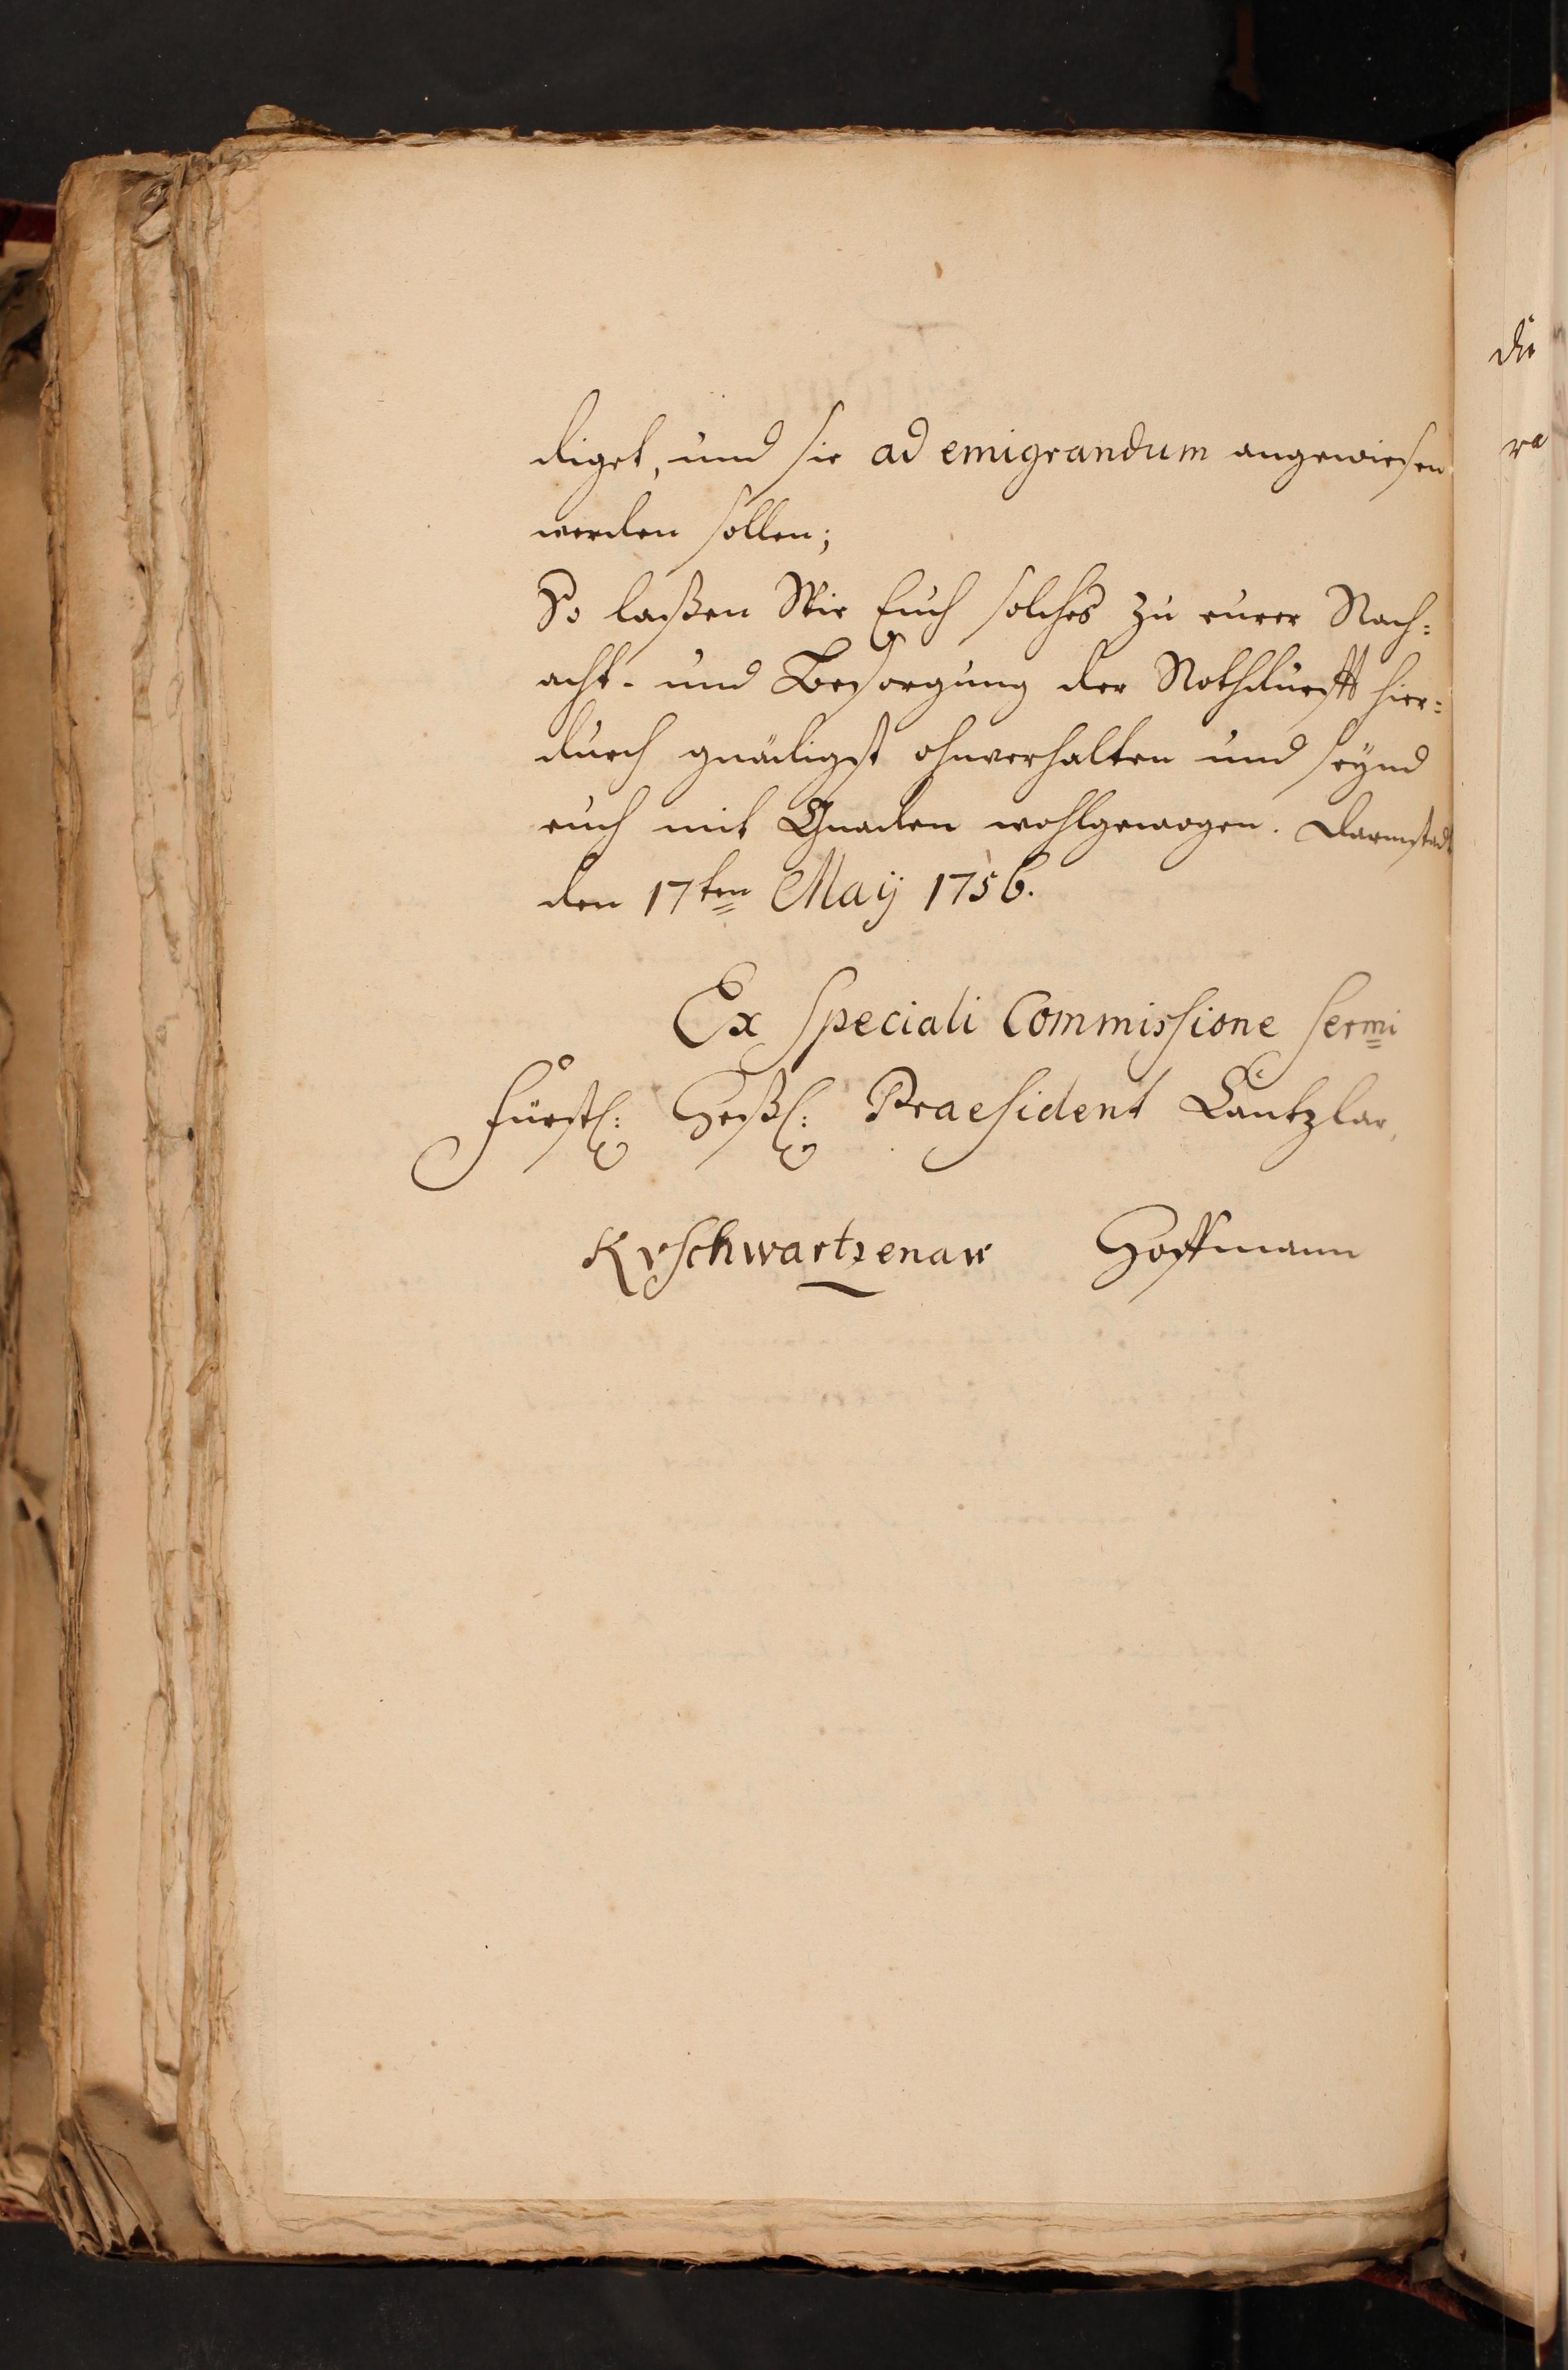 diget, und sie ad emigrandum angewiesen
werden sollen;
So laßen Wir Euch solches zu eurer Nach=
acht- und Besorgung der Nothdurfft hier=
durch gnädigst ohnverhalten und seynd
euch mit Gnaden wohlgewogen. Darmstadt
den 17ten Maÿ 1756.
Ex Speciali Commissione Sermi
Fürstl: Heßl: Praesident Cantzlar,
KvSchwartzenau Hoffmann
die